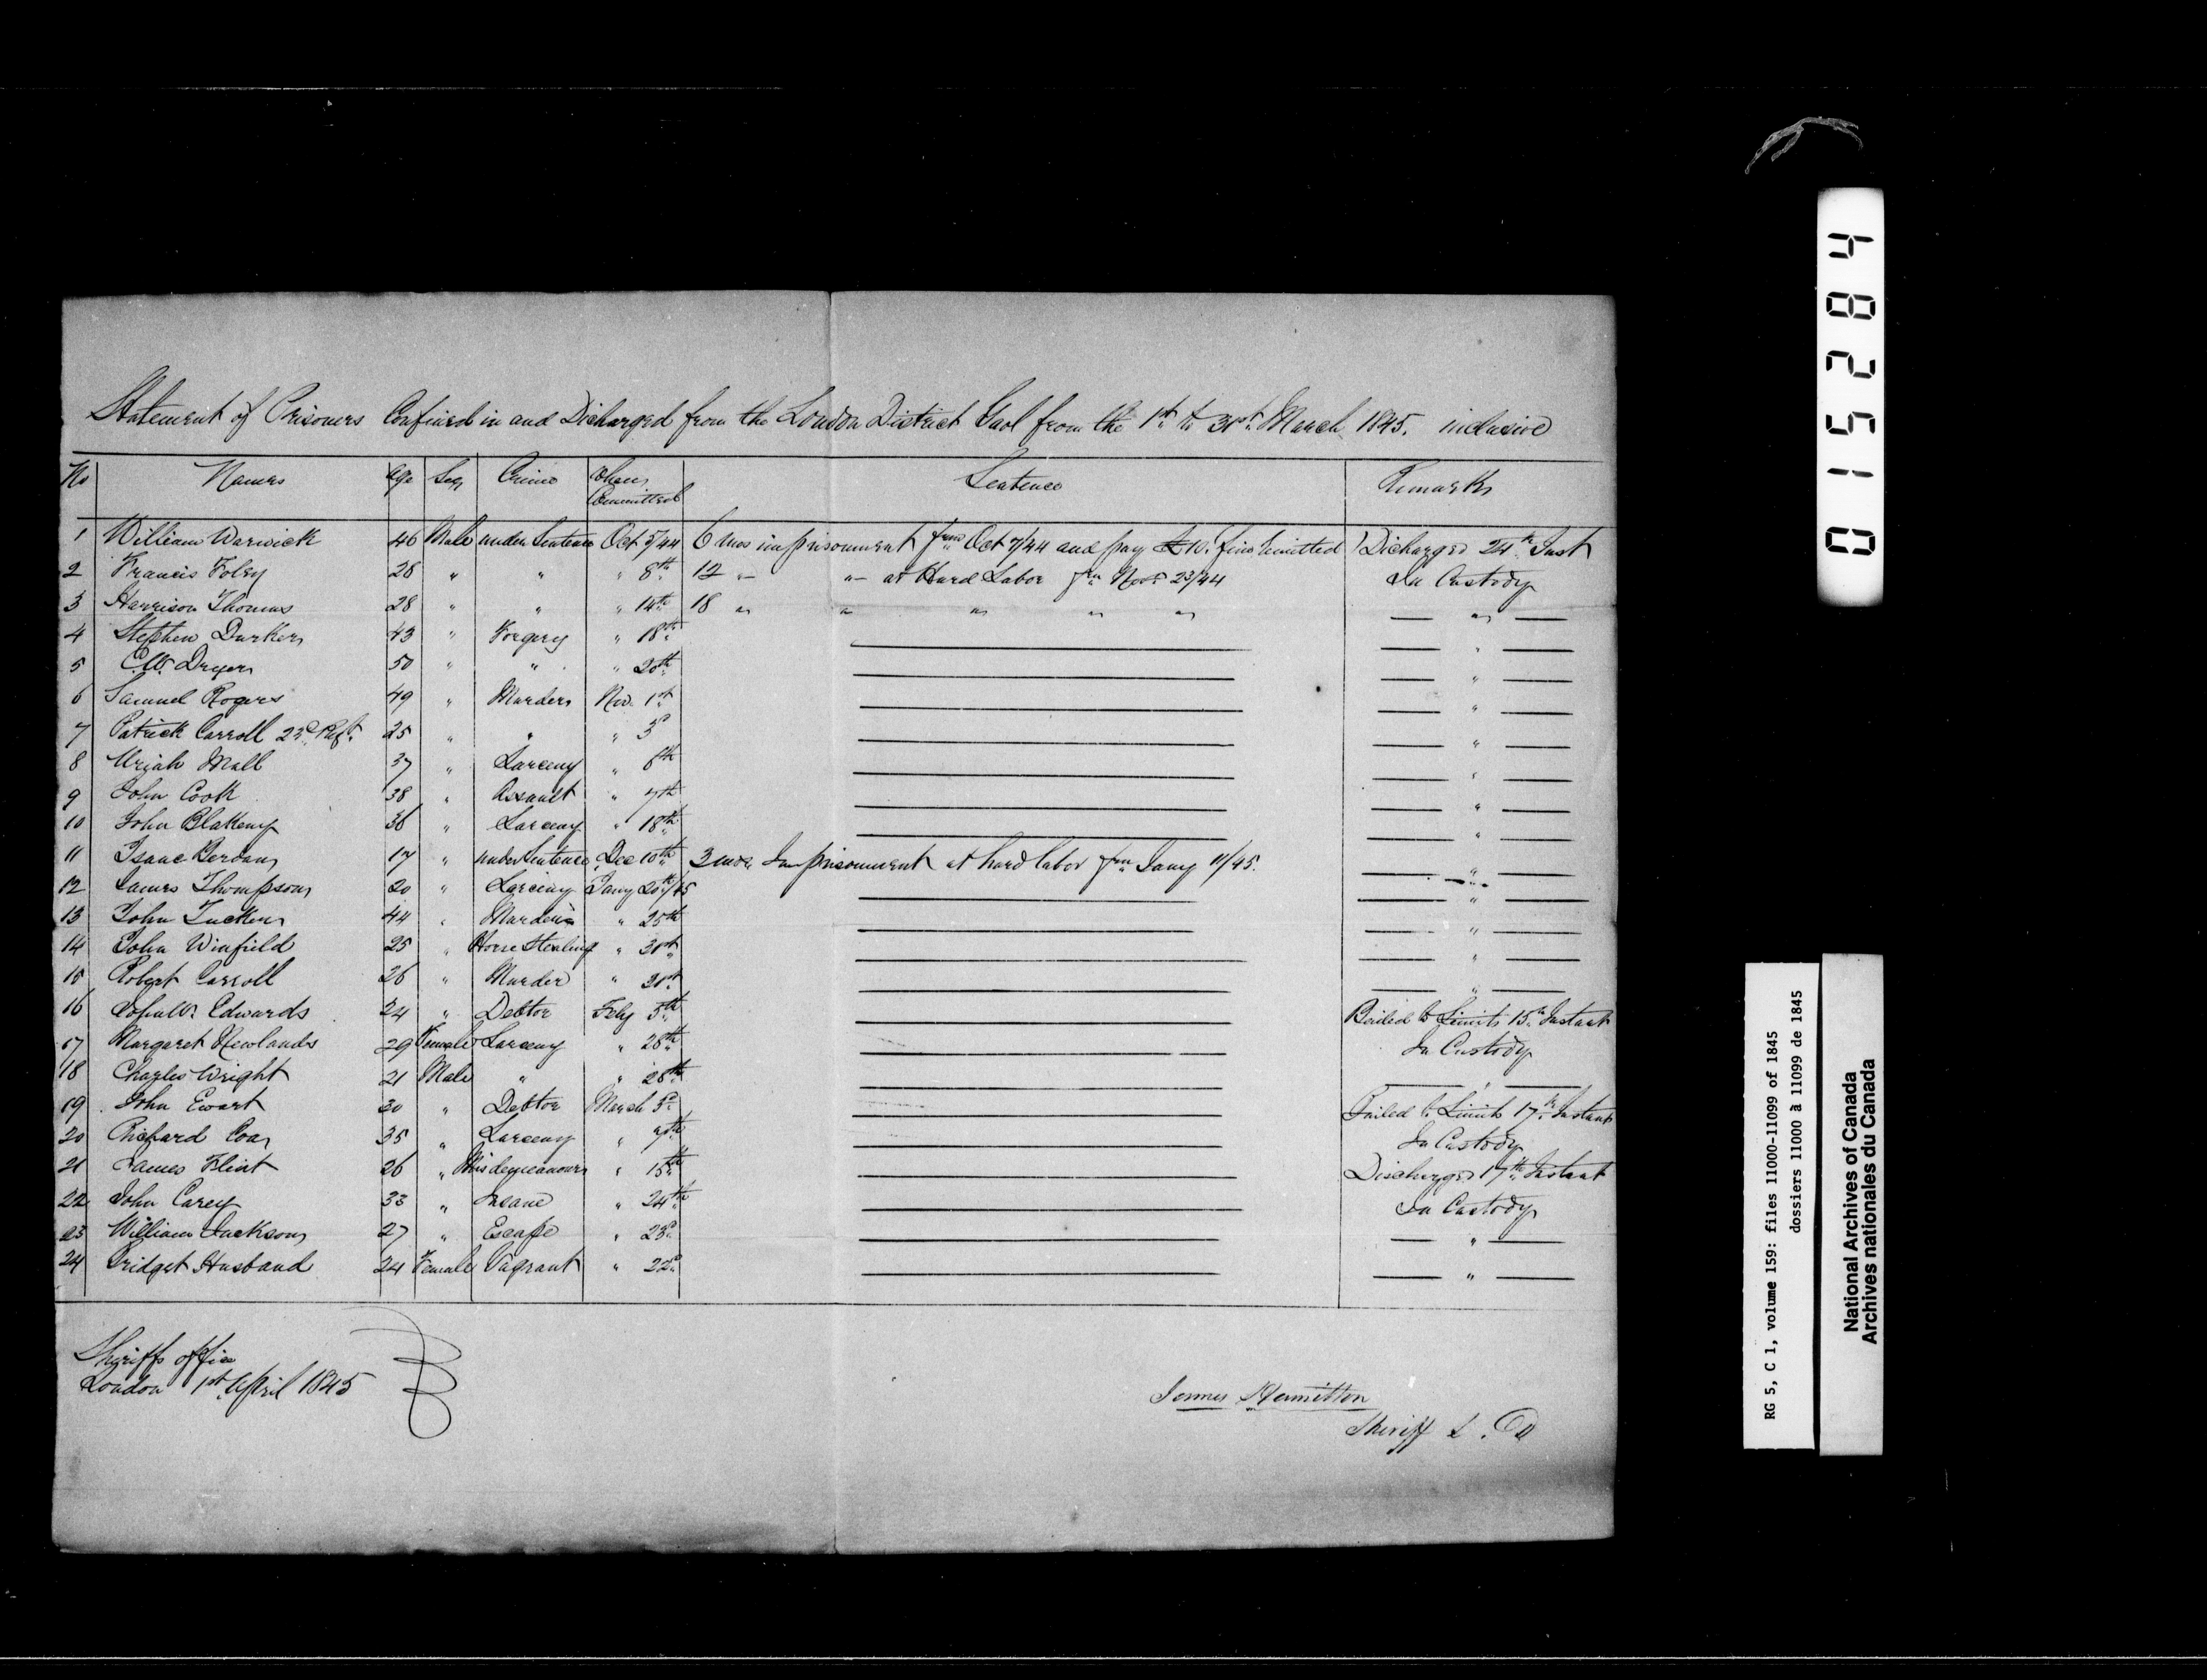 Statement of Prisoners Confined in and Discharged from the London District Gaol from the 1st to 31st March 1845. inclusive
No Names Age Sex Crime When Committed Sentence Remarks
1 William Warwick 46 Male under Sentence Oct 5/44 6 mos imprisonment from Oct 7/44 and pay £10. fine remitted Discharged 24th Inst
2 Francis Foley 28 " " " 8th 12 " " at Hard Labor fm Novr 23/44 In Custody
3 Harrison Thomas 28 " " " 14th 18 " " " " " "
4 Stephen Durker 43 " Forgery " 18th "
5 C.W. Dryer 50 " " " 20th "
6 Samuel Rogers 49 " Murder Nov. 1st "
7 Patrick Carroll 23d Regt 25 " " " 3d "
8 Uriah Mall 37 " Larceny " 6th "
9 John Cook 38 " Assault " 7th "
10 John Blakeny 36 " Larceny " 18th "
11 Isaac Berdan 17 " under Sentence Dec 10th 3 mos Imprisonment at hard labor fm Jany 11/45. "
12 James Thompson 20 " Larceny Jany 20th/45 "
13 John Tucker 44 " Murder " 25th "
14 John Winfield 25 " Horse Stealing " 31st "
15 Robert Carroll 26 " Murder " 31st "
16 John W. Edwards 24 " Debtor Feby 5th Bailed to Limits 15th Instant
17 Margaret Newlands 29 Female Larceny " 28th In Custody
18 Charles Wright 21 Male " " 28th "
19 John Ewart 30 " Debtor March 3d Bailed to Limits 17th Instant
20 Richard Coar 35 " Larceny " 7th In Custody
21 James Flint 26 " Misdemeanour " 15th Discharged 17th Instant
22 John Carey 33 " Insane " 24th In Custody
23 William Jackson 27 " Escape " 23d "
24 Bridget Husband 24 Female Vagrant " 22d "
Sheriffs office
London 1st April 1845
James Hamilton
Sheriff L. D
015284
RG 5, C 1, volume 159: files 11000-11099 of 1845
dossiers 11000 à 11099 de 1845
National Archives of Canada
Archives nationales du Canada